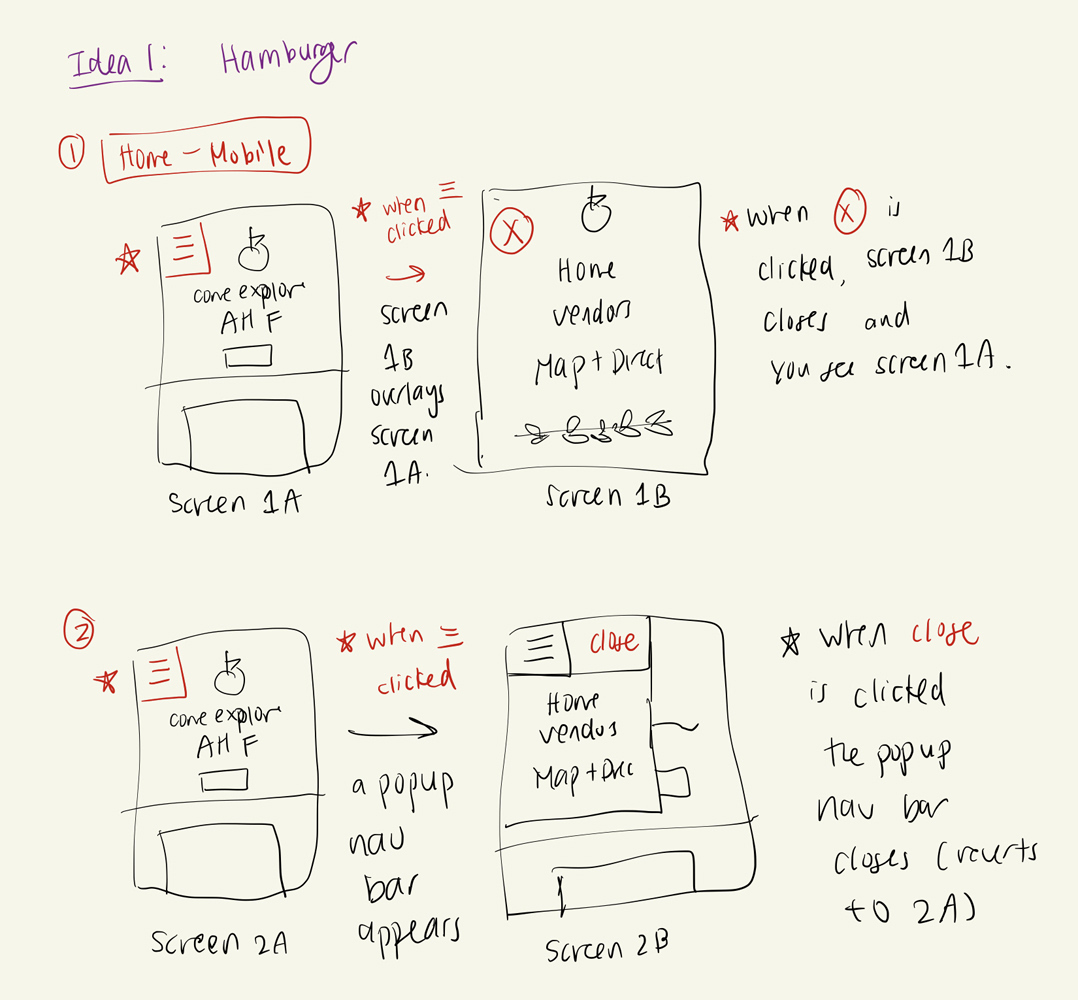 Idea 1: Hamburger
1 Home - Mobile
come explor
AH F
Screen 1A
when ☰
clicked
screen
1B
overlays
screen
1A.
X
Home
vendors
Map + Direct
Screen 1B
when X is
clicked, screen 1B
closes and
you see screen 1A.
2
come explor
AH F
Screen 2A
when ☰
clicked
a popup
nav
bar
appears
close
Home
vendors
Map + Direc
Screen 2B
when close
is clicked
the popup
nav bar
closes (reverts
to 2A)